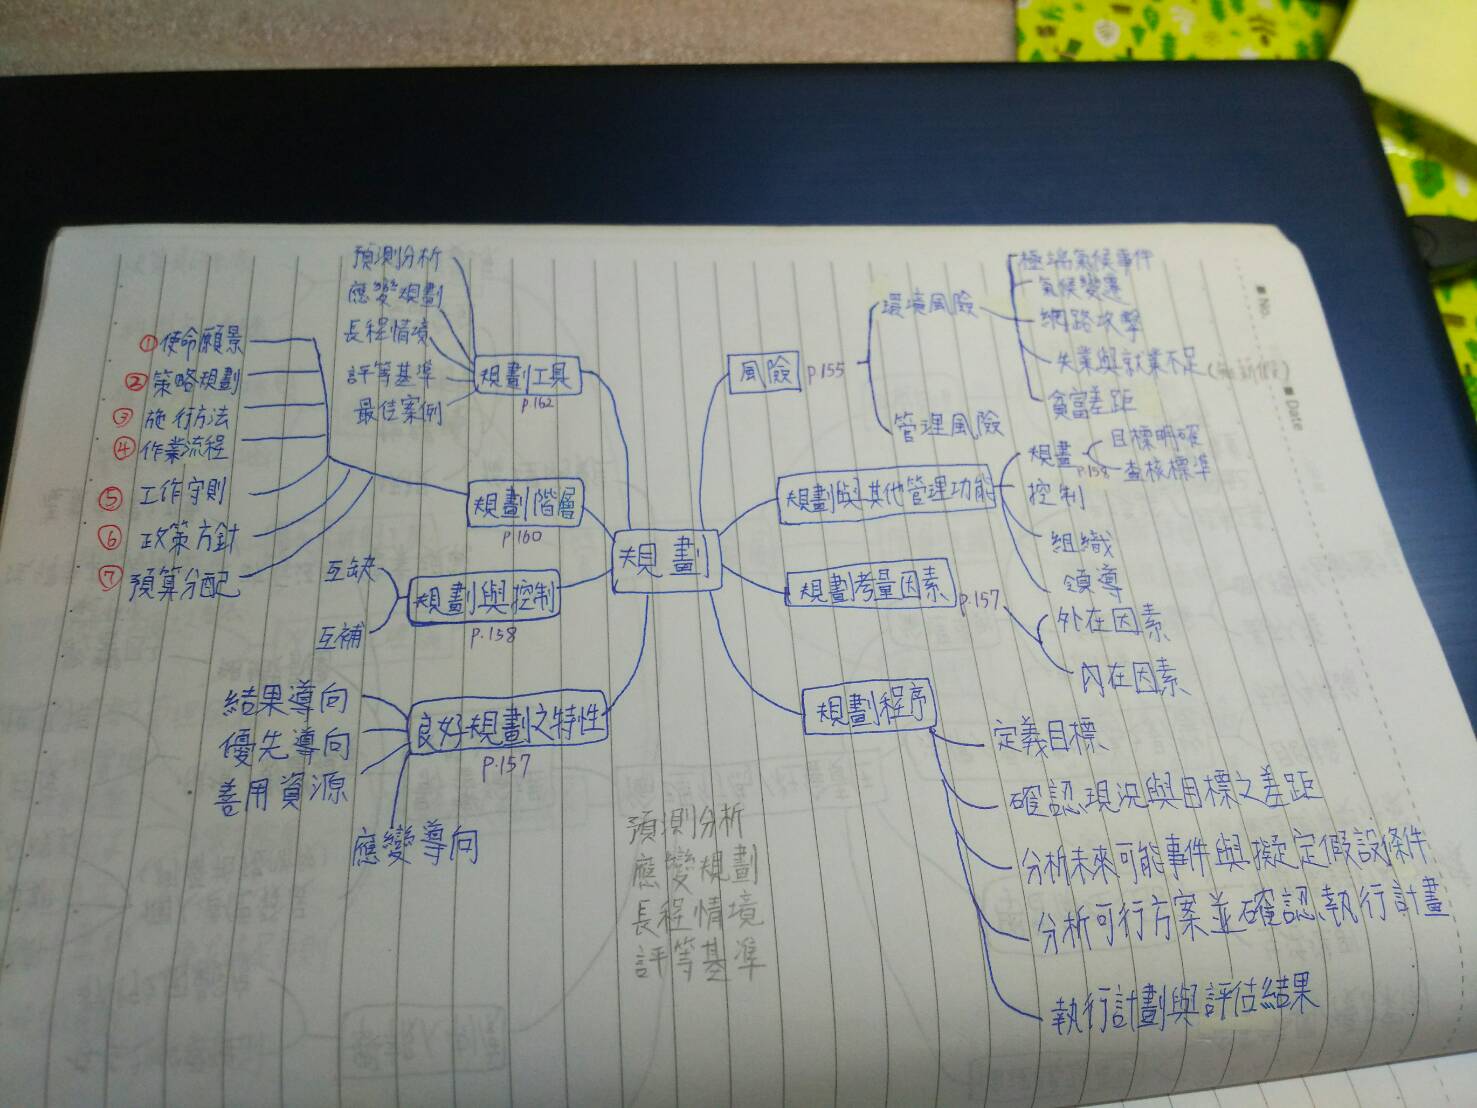 規劃
規劃工具
p.162
預測分析
應變規劃
長程情境
評等基準
最佳案例
規劃階層
p.160
①使命願景
②策略規劃
③施行方法
④作業流程
⑤工作守則
⑥政策方針
⑦預算分配
規劃與控制
p.158
互缺
互補
良好規劃之特性
p.157
結果導向
優先導向
善用資源
應變導向
預測分析
應變規劃
長程情境
評等基準
風險 p.155
環境風險
極端氣候事件
氣候變遷
網路攻擊
失業與就業不足
貧富差距
管理風險
規劃與其他管理功能
規畫
p.158
目標明確
查核標準
控制
組織
領導
規劃考量因素 p.157
外在因素
內在因素
規劃程序
定義目標
確認現況與目標之差距
分析未來可能事件與擬定假設條件
分析可行方案並確認執行計畫
執行計劃與評估結果
No.
Date